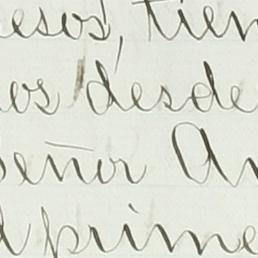 esos, tien
os desde
señor An
d prime